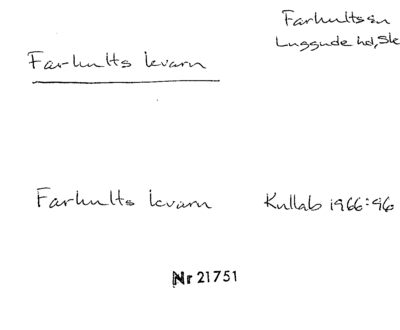 Farhults sn
Luggude hd, Sk
Farhults kvarn
Farhults kvarn Kullab 1966:96
Nr 21751